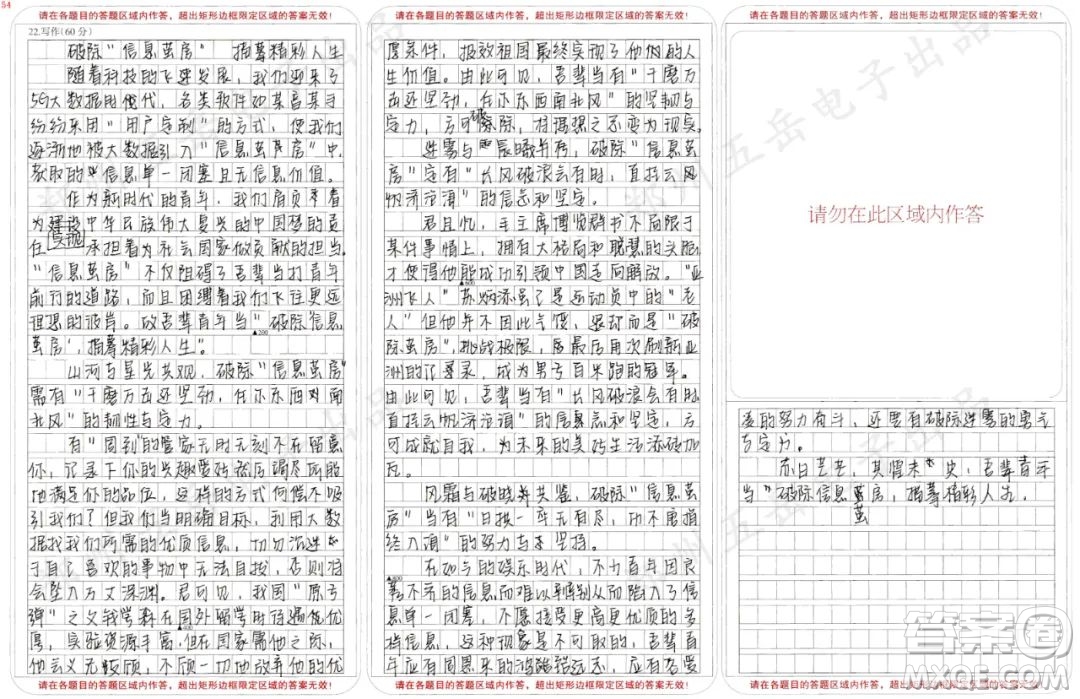 54
请在各题目的答题区域内作答，超出矩形边框限定区域的答案无效！
22.写作（60分）
破除“信息茧房” 描摹精彩人生
随着科技的飞速发展，我们迎来了
5G大数据时代，各类软件如某音某手
纷纷采用“用户定制”的方式，使我们
逐渐地被大数据引入“信息茧房”中，
获取的信息单一闭塞且无信息价值。
作为新时代的青年，我们肩负着
为实现中华民族伟大复兴的中国梦的责
任 承担着为社会国家做贡献的担当。
“信息茧房”不仅阻碍了吾辈当打青年
前行的道路，而且团绕着我们飞往更远
理想的彼岸。故吾辈青年当“破除信息
▲200
茧房，描摹精彩人生。”
山河与星光共观，破除“信息茧房”
需有“千磨万击还坚劲，任尔东西南
北风”的韧性与定力。
有“周到”的管家无时无刻不在留意
你，了录下你的兴趣爱好就后竭尽所能
地满足你的品位，这样的方式何偿不吸
引我们？但我们当明确目标，利用大数
据找我们所需的优质信息，切勿沉迷
于自己喜欢的事物中无法自拔，否则将
会坠入万丈深渊。君可见，我国“原子
弹”之父钱学森在国外留学时待遇优
厚，实验资源丰富，但在国家需他之际，
他会义无反顾，不顾一切地放弃他的优
请在各题目的答题区域内作答，超出矩形边框限定区域的答案无效！
请在各题目的答题区域内作答，超出矩形边框限定区域的答案无效！
厚条件，报效祖国最终实现了他们的人
生价值。由此可见，吾辈当有“千磨万
击还坚劲，任尔东西南北风”的坚韧与
定力，方可破除，将遇想之不变为现实。
迷雾与晨曦并存，破除“信息茧
房”定有“长风破浪会有时，直挂云帆
济沧海”的信念和坚定。
君且忆，毛主席博览群书不局限于
某件事情上，拥有大格局和聪慧的头脑
才使得他能成功引领中国走向解放。“亚
▲600
洲飞人”苏炳添虽了是运动员中的“老
人”但他并不因此气馁，是却而是“破
除茧房”，挑战极限，最后再次刷新亚
洲的记录，成为男子百米跑的冠军。
由此可见，吾辈当有“长风破浪会有时
直挂云帆济沧海”的信念和坚定，方
可成就自我，为未来的美好生活添砖加
瓦。
风霜与破晓共鉴，破除“信息茧
房”当有“日拱一卒无有尽，功不唐捐
终入海”的努力与坚持。
在如今的娱乐时代，不少青年因良
▲800
莠不齐的信息而难以辨别从而陷入了信
息单一闭塞，不愿接受更高更优质的多
样信息，这种现象是不可取的，吾辈青
年应有周恩来的鸿鹄远志，应有苏轼
请在各题目的答题区域内作答，超出矩形边框限定区域的答案无效！
请在各题目的答题区域内作答，超出矩形边框限定区域的答案无效！
请勿在此区域内作答
的努力奋斗，还要有破除迷雾的勇气
与定力。
东日艺艺，其，吾辈青年
当“破除信息茧房，描摹精彩人生。
茧
请在各题目的答题区域内作答，超出矩形边框限定区域的答案无效！
郑州五岳电子出品
答案圈
MXQE.COM